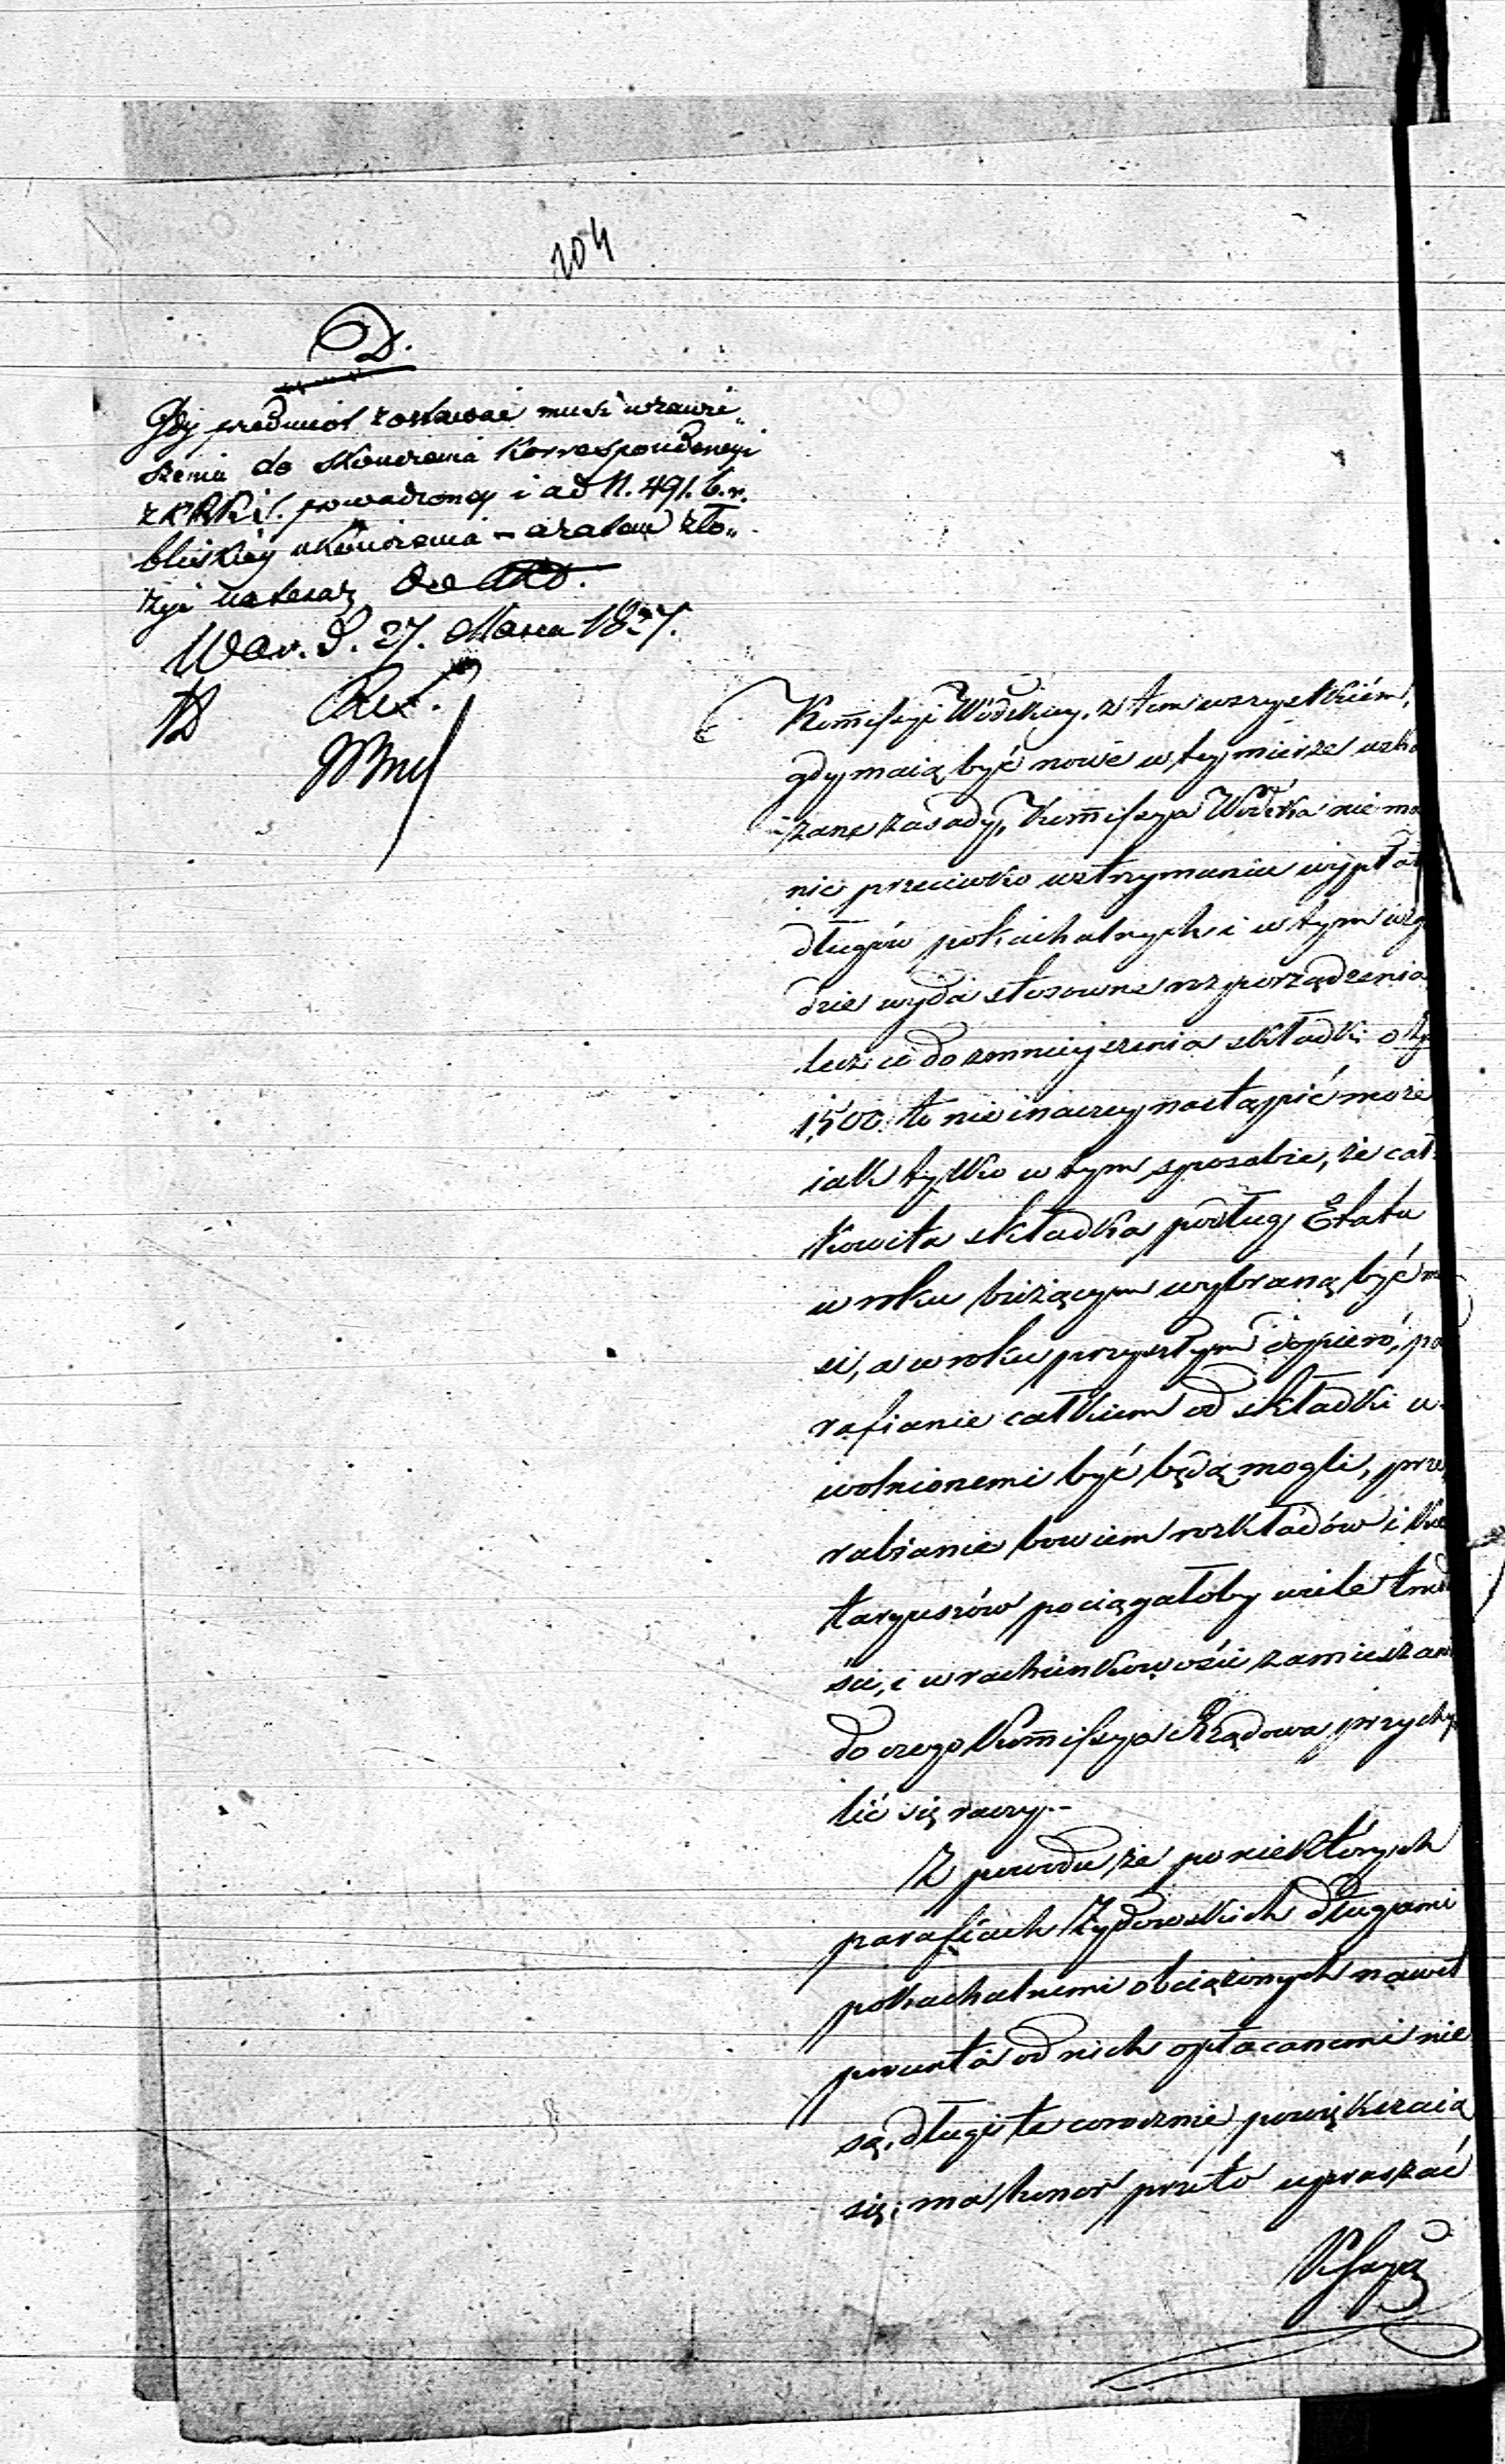 204
D.
Gdy przedmiot zostawać musi w zawie„
szeniu do skończenia Korrespondencyi
z KRPiS. prowadzoney i ad N. 491. b. r.
bliskiéy ukończenia – a zatem zło„
żyć na teraz do Akt.
War. d. 27. Marca 1827.
Kommissyi Wódzkiey, z tem wszystkiém,
gdy maią być nowe w tey mierze wska
zane zasady, Kommissya Wódzka nie ma
nic przeciwko wstrzymaniu wypłat
długów pokachalnych i w tym wzglę
dzie wyda stosowne rozporządzenia
lecz co do zmnieyszenia składki o
1,500 to nie inaczey nastąpić może
iak tylko w tym sposobie, że cał
kowita składka podług Etatu
w roku bieżącym wybraną być mu
si, a w roku przyszłym dopiero, pa
rafianie całkiem od składki u
wolnionemi być będą mogli, prze
rabianie bowiem rozkładów i
taryuszów pociągałoby wiele trudno
ści, i w rachunkowości zamieszania
do czego Kommissya Rządowa przychy
lić się raczy.–
Z powodu że po niektórych
parafiach Żydowskich długami
pokachalnemi obciążonych nawet
procenta od nich opłacanemi nie
są, długi te corocznie powiększaią
się, ma honor przeto upraszać